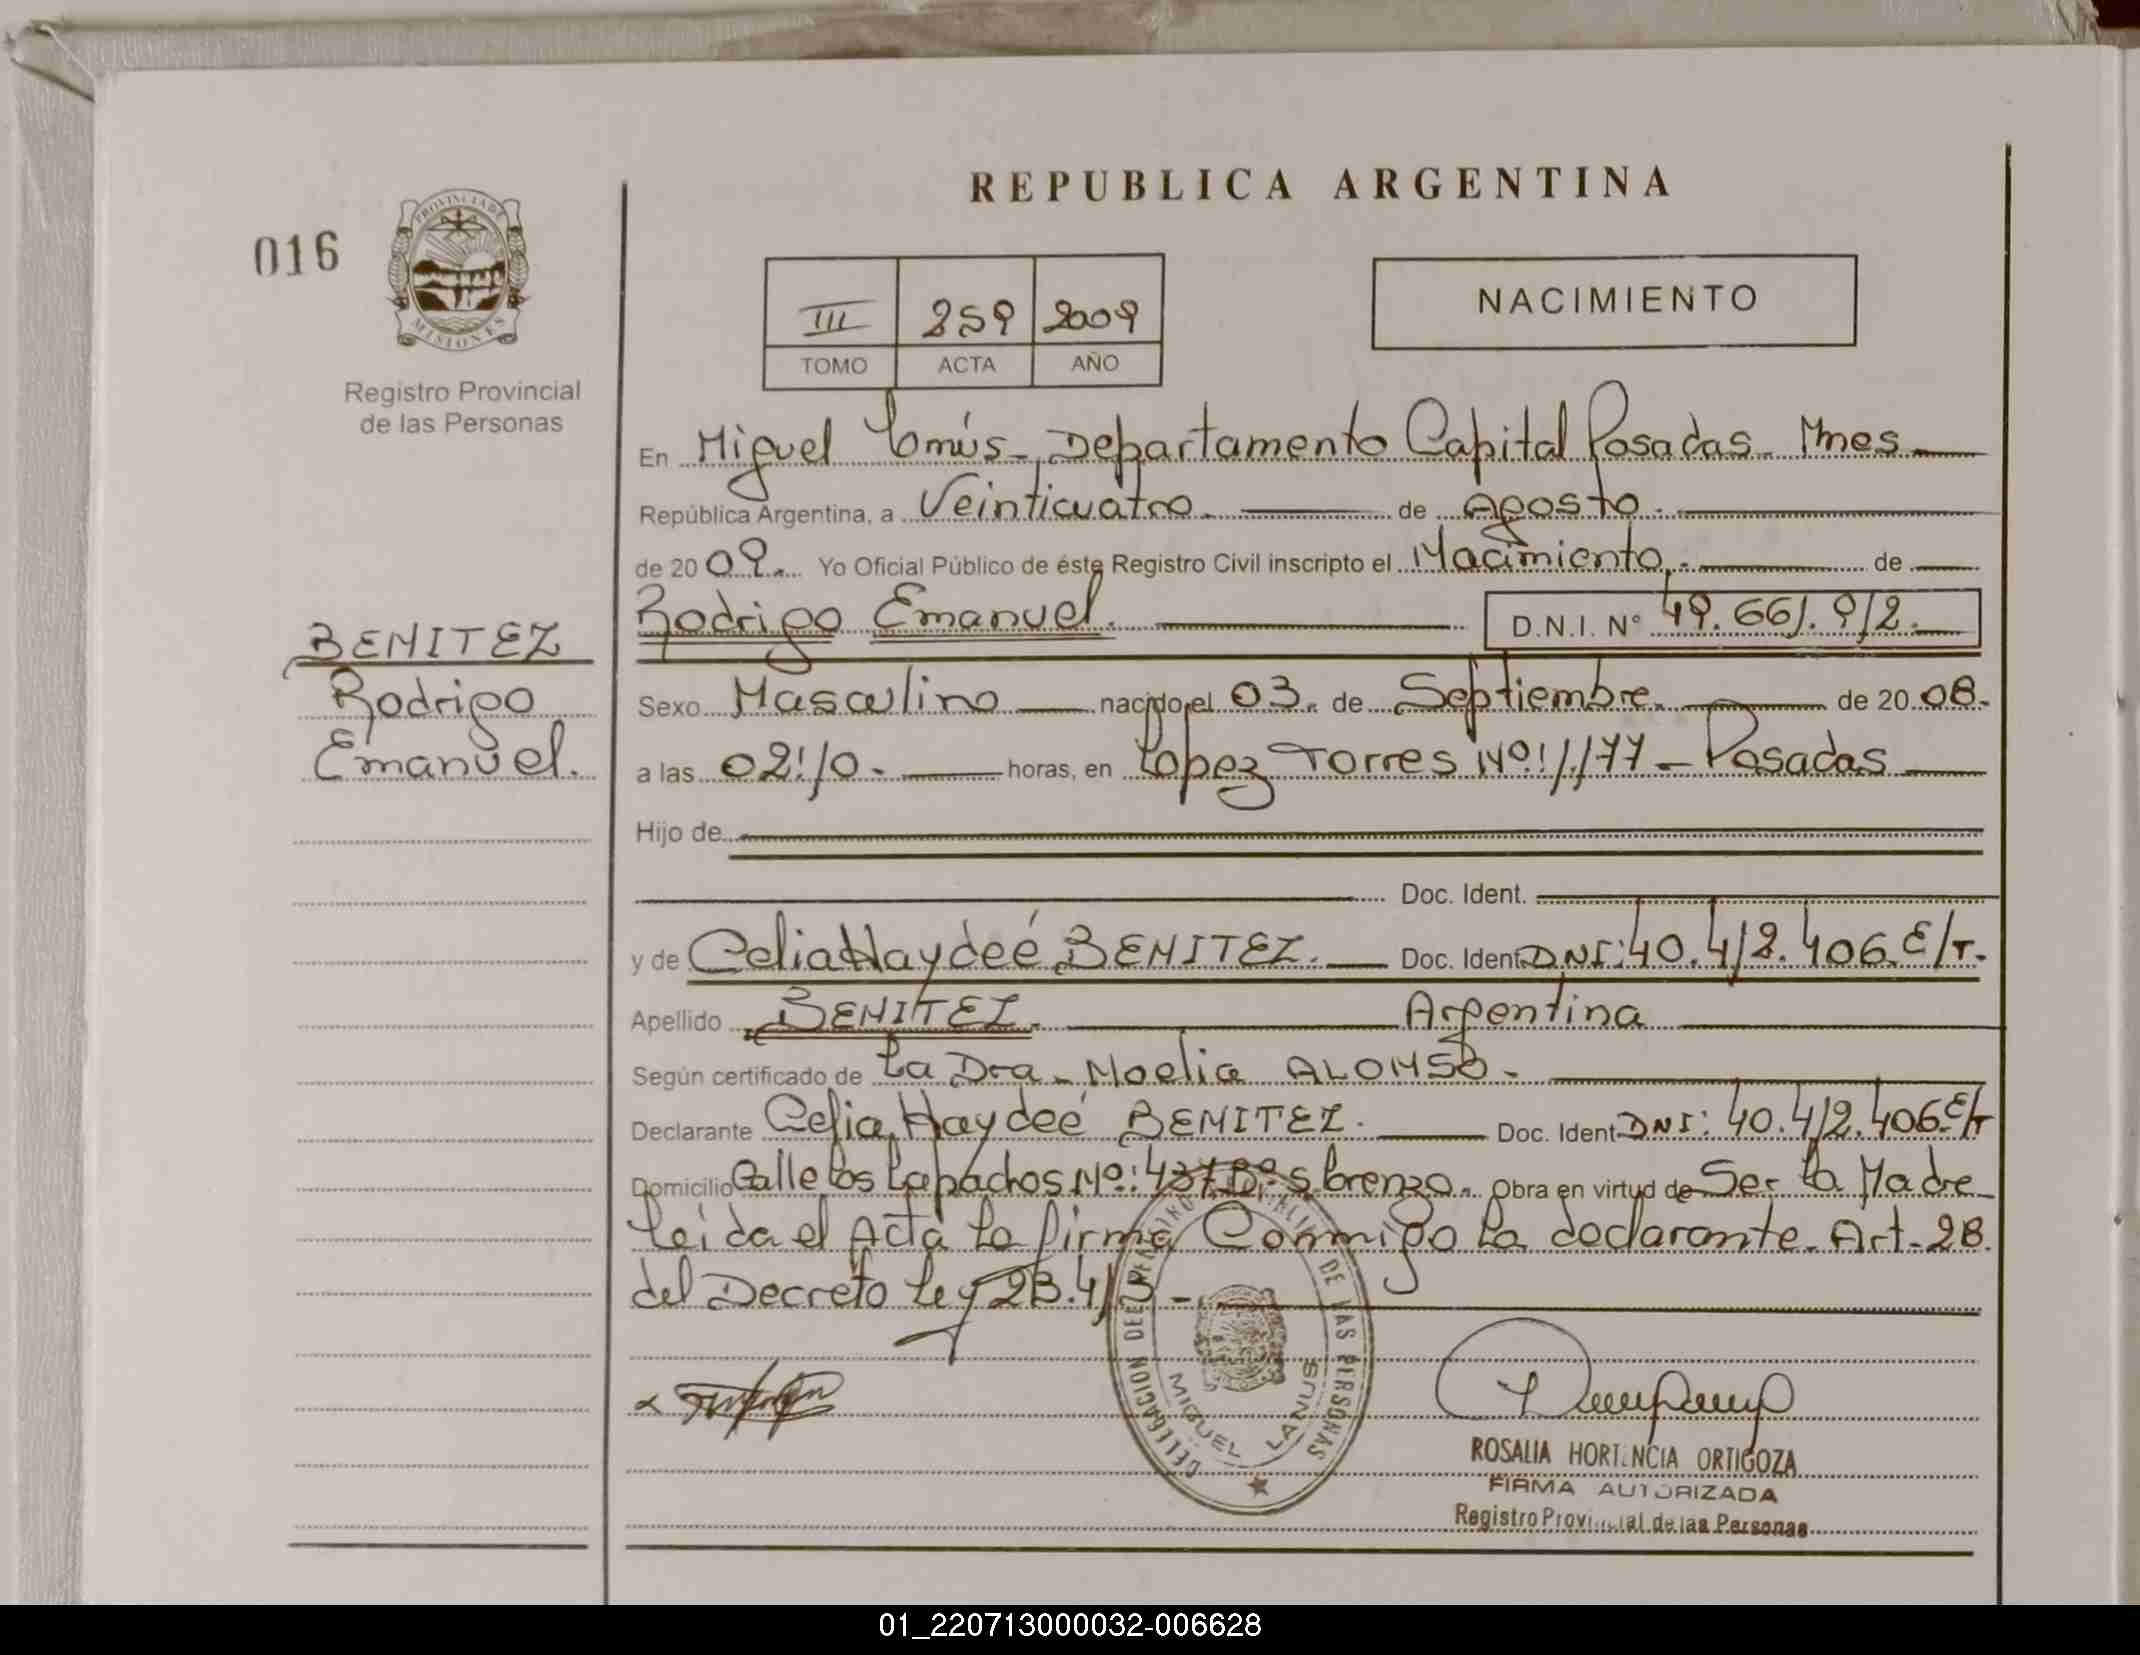 REPUBLICA ARGENTINA
016
PROVINCIA DE
MISIONES
Registro Provincial
de las Personas
III 259 2009
TOMO ACTA AÑO
NACIMIENTO
En Miguel Lanús - Departamento Capital Posadas - Mnes
República Argentina, a Veinticuatro. de Agosto.
de 20 09. Yo Oficial Público de éste Registro Civil inscripto el Nacimiento. de
Rodrigo Emanuel. D.N.I. Nº 49.661.912.
BENITEZ
Rodrigo
Emanuel.
Sexo Masculino nacido el 03. de Septiembre. de 20 08.
a las 02:10. horas, en Lopez Torres Nº:1.177 - Posadas
Hijo de
Doc. Ident.
y de Celia Haydeé BENITEZ. Doc. Ident. DNI: 40.412.406 E/T.
Apellido BENITEZ. Argentina
Según certificado de La Dra. Noelia ALONSO.
Declarante Celia Haydeé BENITEZ. Doc. Ident. DNI: 40.412.406 E/T
Domicilio Calle Los Lapachos Nº: 437 Bº S. Lorenzo. Obra en virtud de Ser La Madre
Leída el Acta La firma Conmigo La declarante. Art. 28.
del Decreto Ley
DELEGACION DEL REGISTRO PROVINCIAL DE LAS PERSONAS
MIGUEL LANUS
ROSALIA HORTENCIA ORTIGOZA
FIRMA AUTORIZADA
Registro Provincial de las Personas
01_220713000032-006628